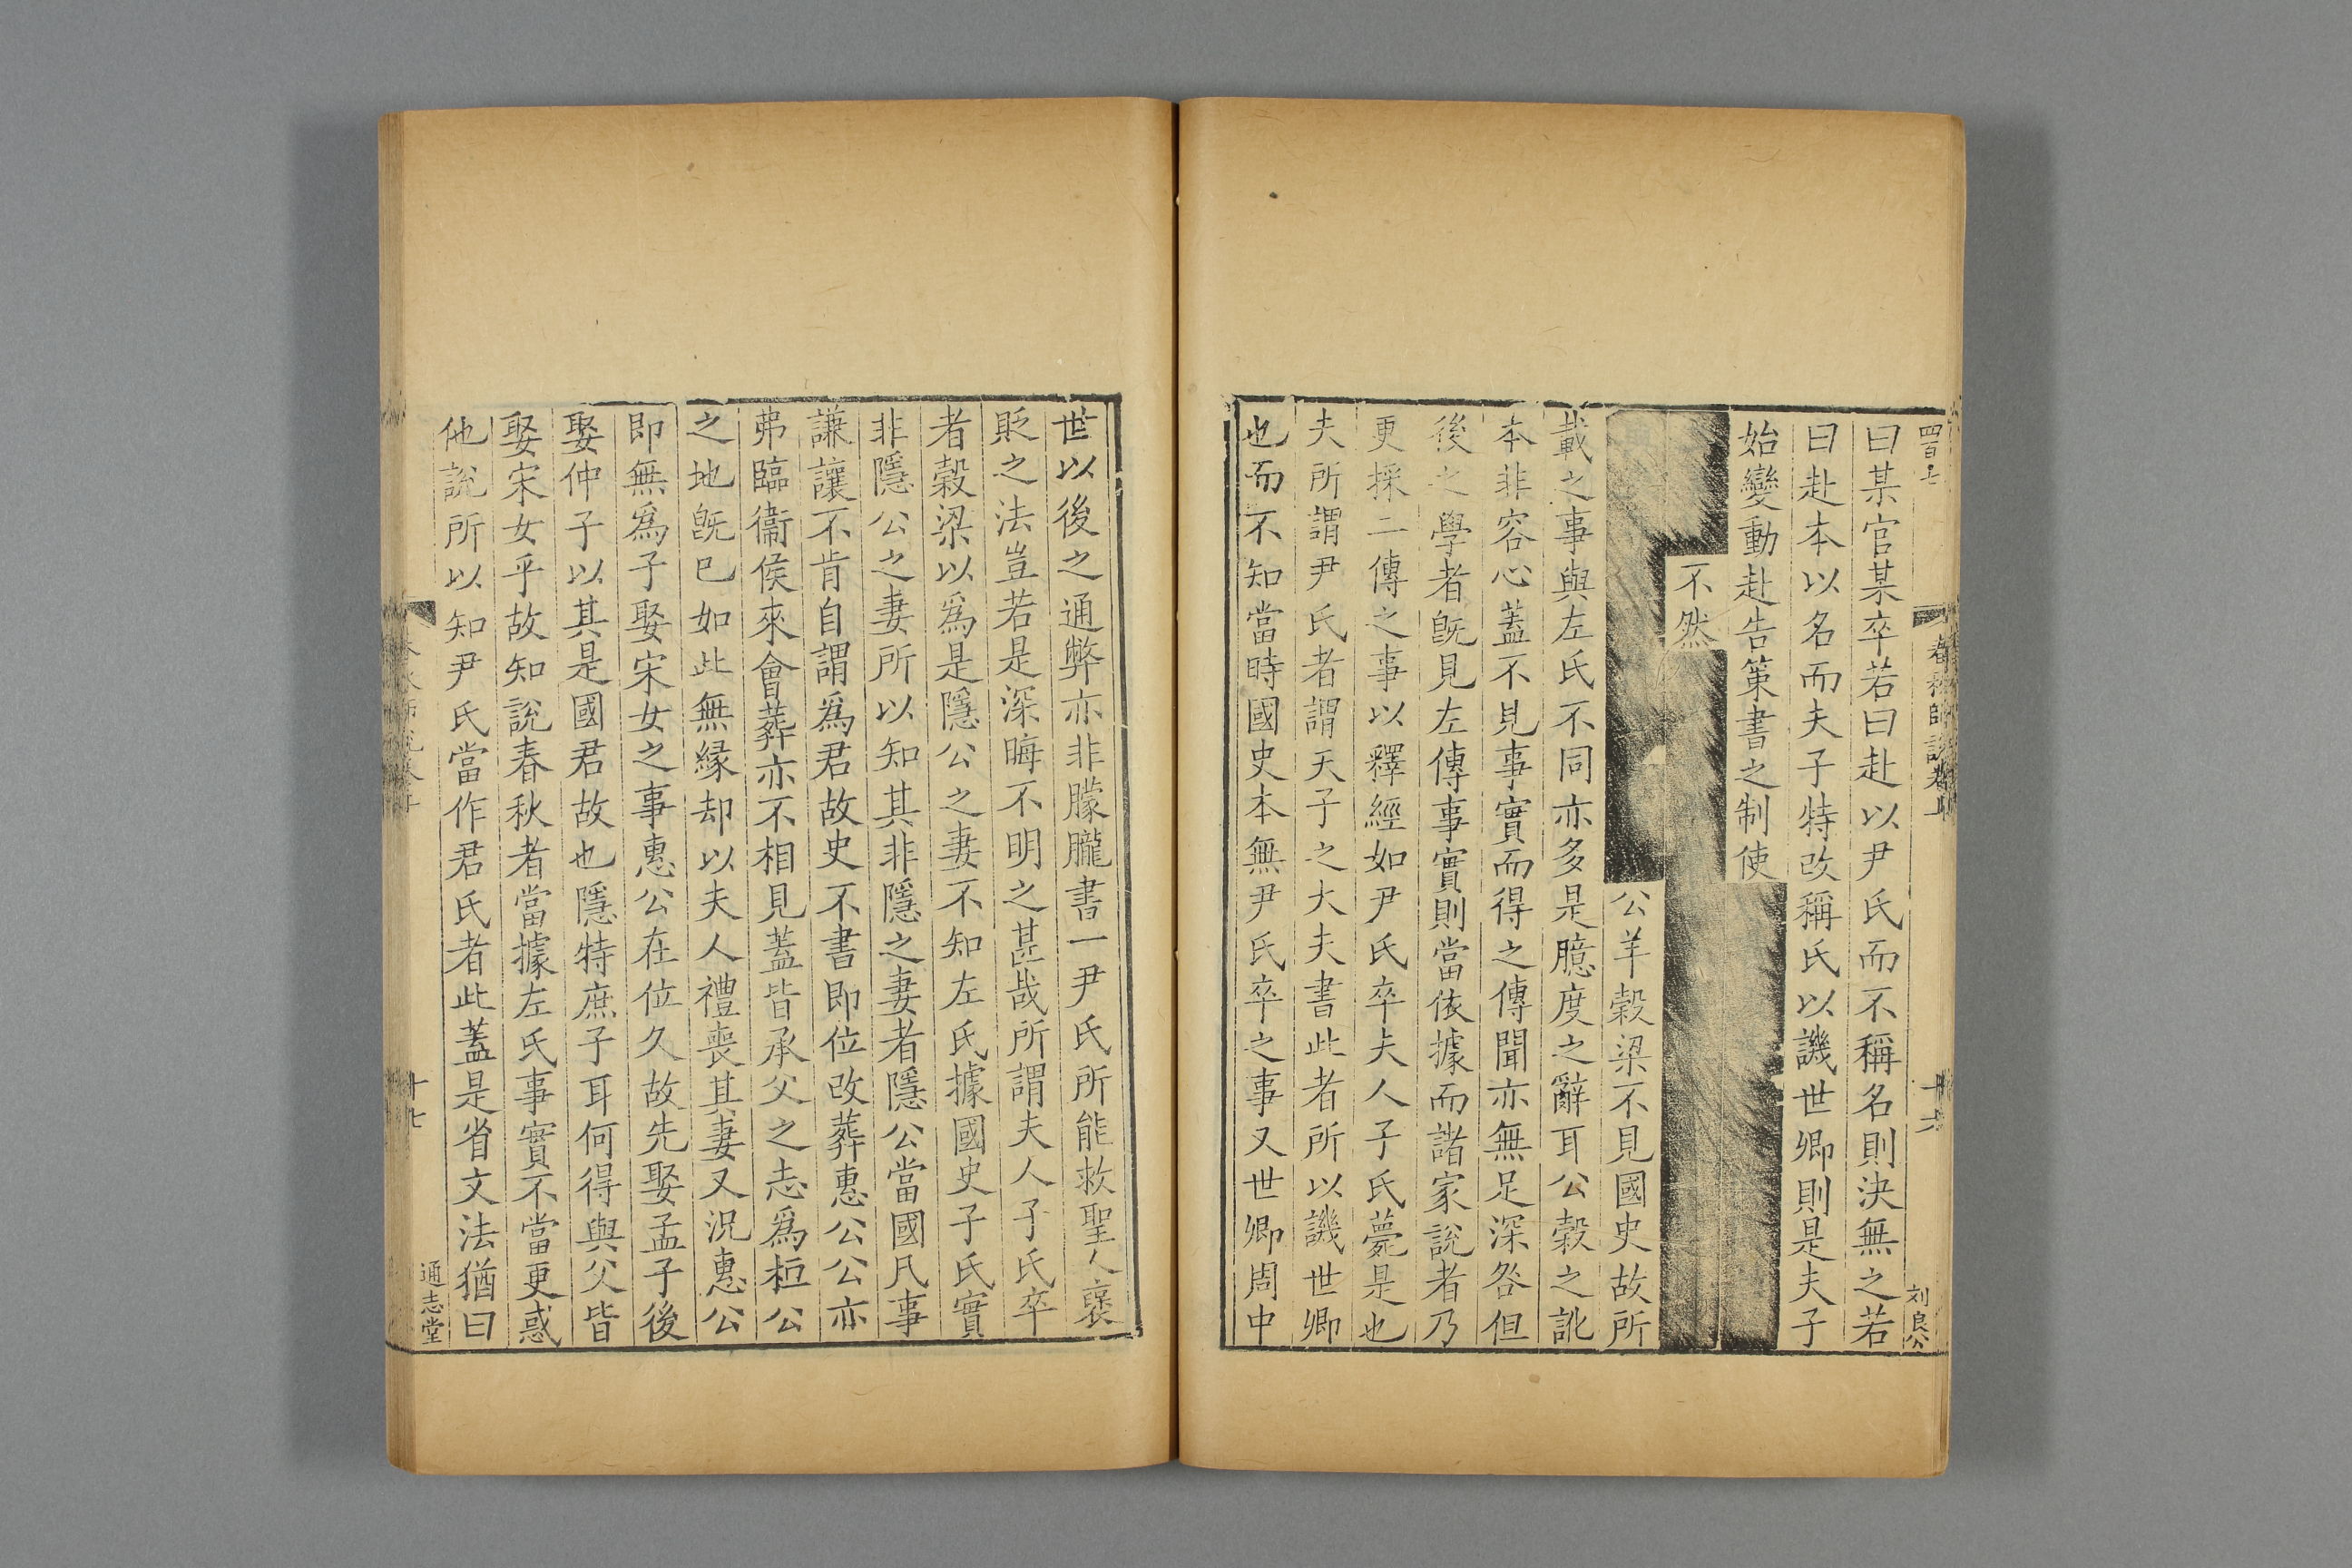 四百七
春秋師說卷上
十六
刘良公
曰某官某卒若曰赴以尹氏而不稱名則決無之若
曰赴本以名而夫子特改稱氏以譏世卿則是夫子
始變動赴告策書之制使
不然
公羊穀梁不見國史故所
載之事與左氏不同亦多是臆度之辭耳公穀之訛
本非容心蓋不見事實而得之傳聞亦無足深咎但
後之學者旣見左傳事實則當依據而諸家說者乃
更採二傳之事以釋經如尹氏卒夫人子氏薨是也
夫所謂尹氏者謂天子之大夫書此者所以譏世卿
也而不知當時國史本無尹氏卒之事又世卿周中
世以後之通弊亦非朦朧書一尹氏所能救聖人襃
貶之法豈若是深晦不明之甚哉所謂夫人子氏卒
者穀梁以爲是隱公之妻不知左氏據國史子氏實
非隱公之妻所以知其非隱之妻者隱公當國凡事
謙讓不肯自謂爲君故史不書即位改葬惠公公亦
弗臨衞侯來會葬亦不相見蓋皆承父之志爲桓公
之地旣已如此無緣却以夫人禮喪其妻又況惠公
即無爲子娶宋女之事惠公在位久故先娶孟子後
娶仲子以其是國君故也隱特庶子耳何得與父皆
娶宋女乎故知說春秋者當據左氏事實不當更惑
他說所以知尹氏當作君氏者此蓋是省文法猶曰
十七
通志堂